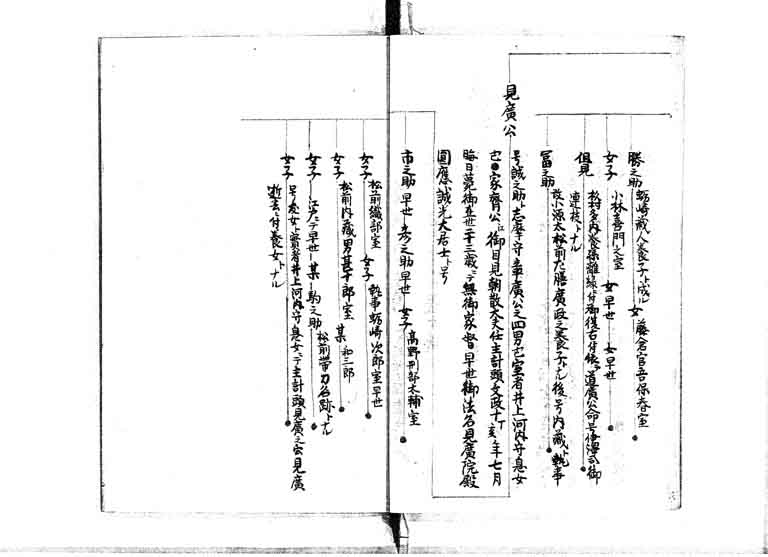 勝之助 蛎崎蔵人養子ト成ル 女 藤倉官吾保春室
女子 小林喜門之室 女 早世 女 早世
但見 松村多内養保離縁ニ付御復古付候 道廣公命号 御
連枝トナル
冨之助 改小源太松前左膳廣政之養子トナル 後号内藏ト 執事
見廣公
号誠之助ト志摩守章廣公之四男也室者井上河内守息女
也 家齊公江御目見朝散大夫任主計頭文政十丁亥年七月
晦日薨御在世二十三歳ニテ無御家督早世御法名見廣院殿
圓應誠光大居士ト号
市之助 早世 彦之助 早世 女子 高野刑部太輔室
女子 松前織部室 女子 執事蛎崎次郎室早世
女子 松前内藏男甚十郎室 某 和三郎
女子 江戸ニテ早世 某 駒之助 松前帯刀名跡トナル
女子 号 女ト實者井上河内守息女ニテ主計頭見廣之室見廣
逝去ニ付養女トナル